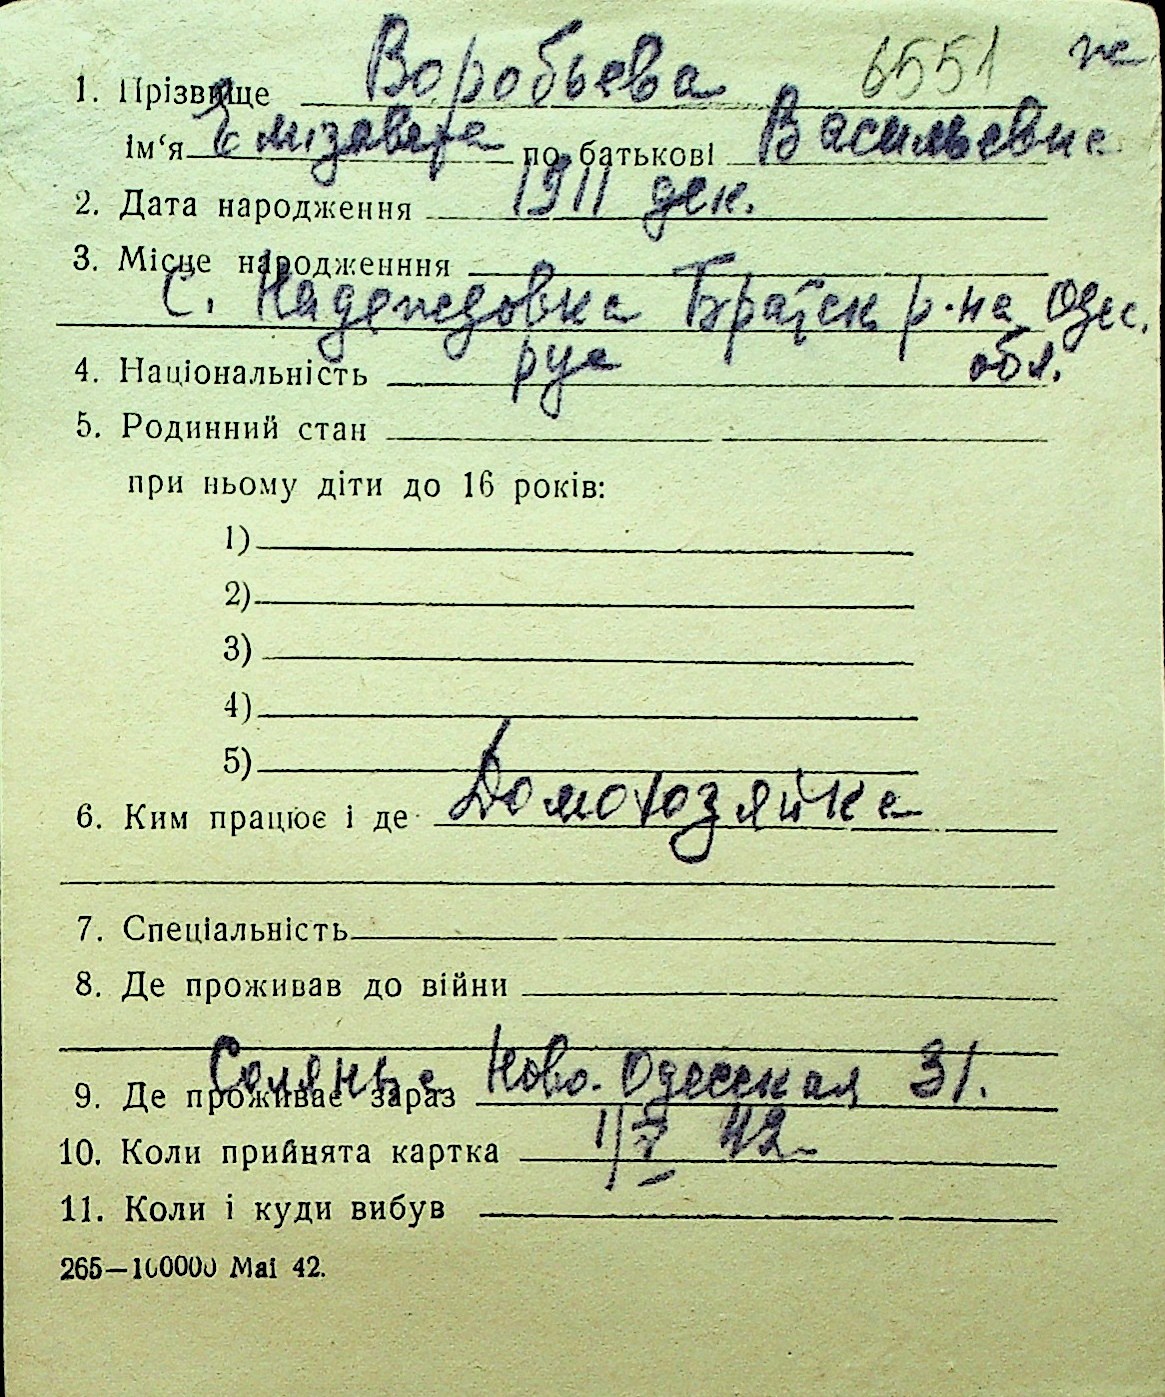 1. Прізвище Воробьева 6551 ж
Ім‘я Елізавета по батькові Васильевна
2. Дата народження 1911 дек.
3. Місце народженння
с. Надеждовка Братск р-на Одес.
обл.
4. Національність рус
5. Родинний стан
при ньому діти до 16 років:
1)
2)
3)
4)
5)
6. Ким працює і де Домохозяйка
7. Спеціальність
8. Де проживав до війни
9. Де проживає зараз Соляные Ново-Одесская 31.
10. Коли прийнята картка 1/V 42
11. Коли і куди вибув
265—100000 Mai 42.